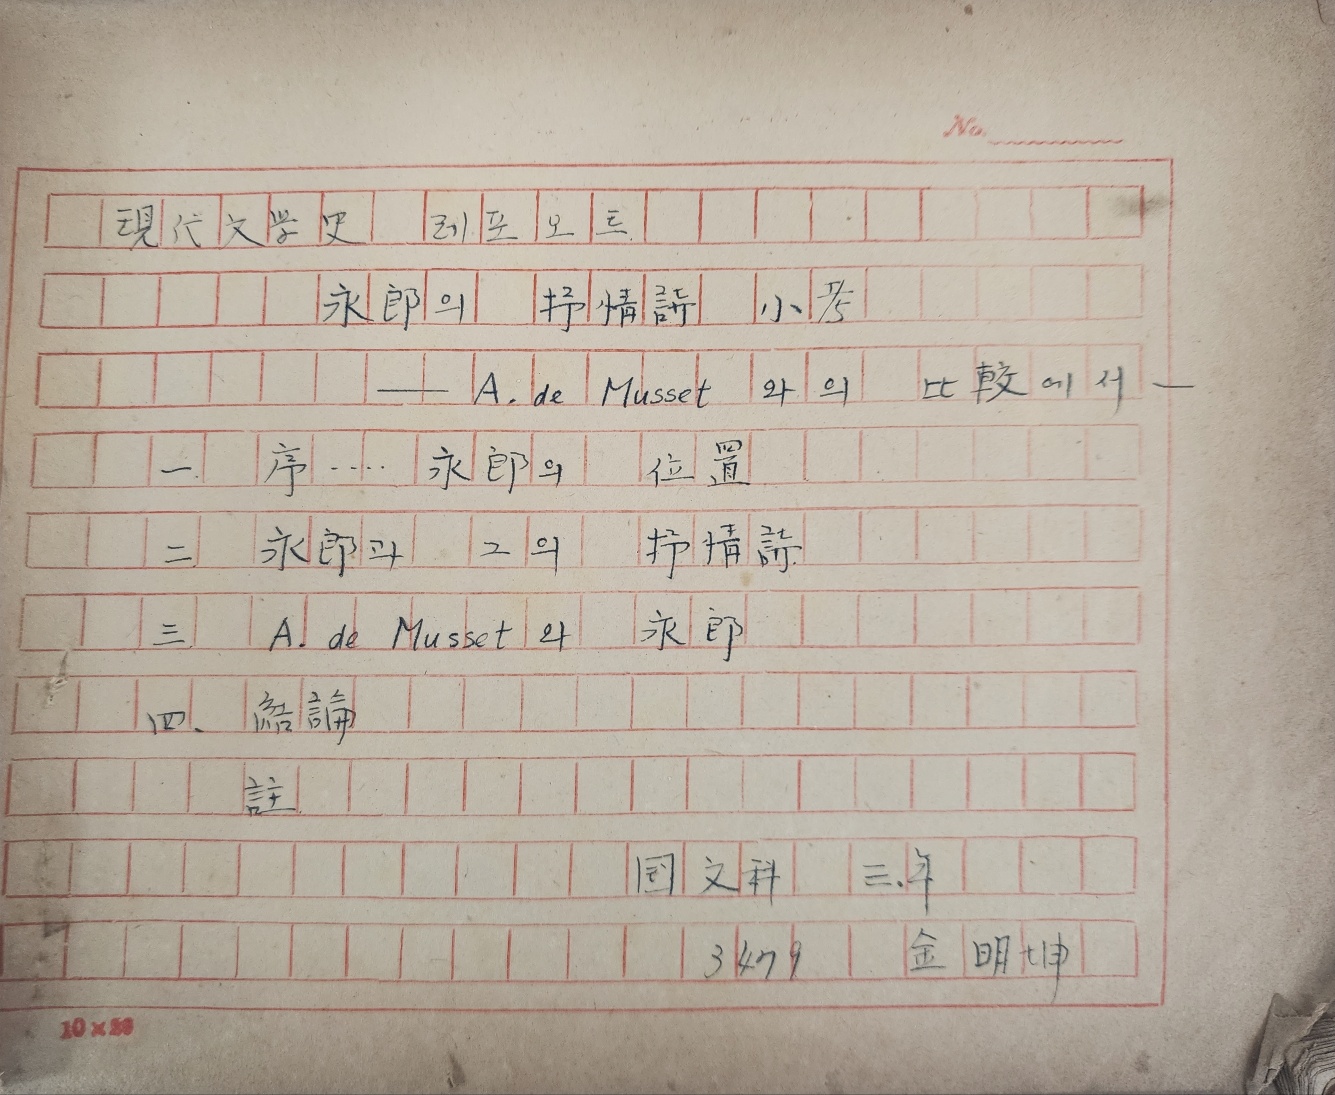 No.
現代文学史 레포오트
永郎의 抒情詩 小考
── A. de Musset 와의 比較에서 ─
一. 序 ‥‥ 永郎의 位置
二. 永郎과 그의 抒情詩.
三. A. de Musset 와 永郎
四. 結論
註.
国文科 三.年
3479 金明坤
10×20